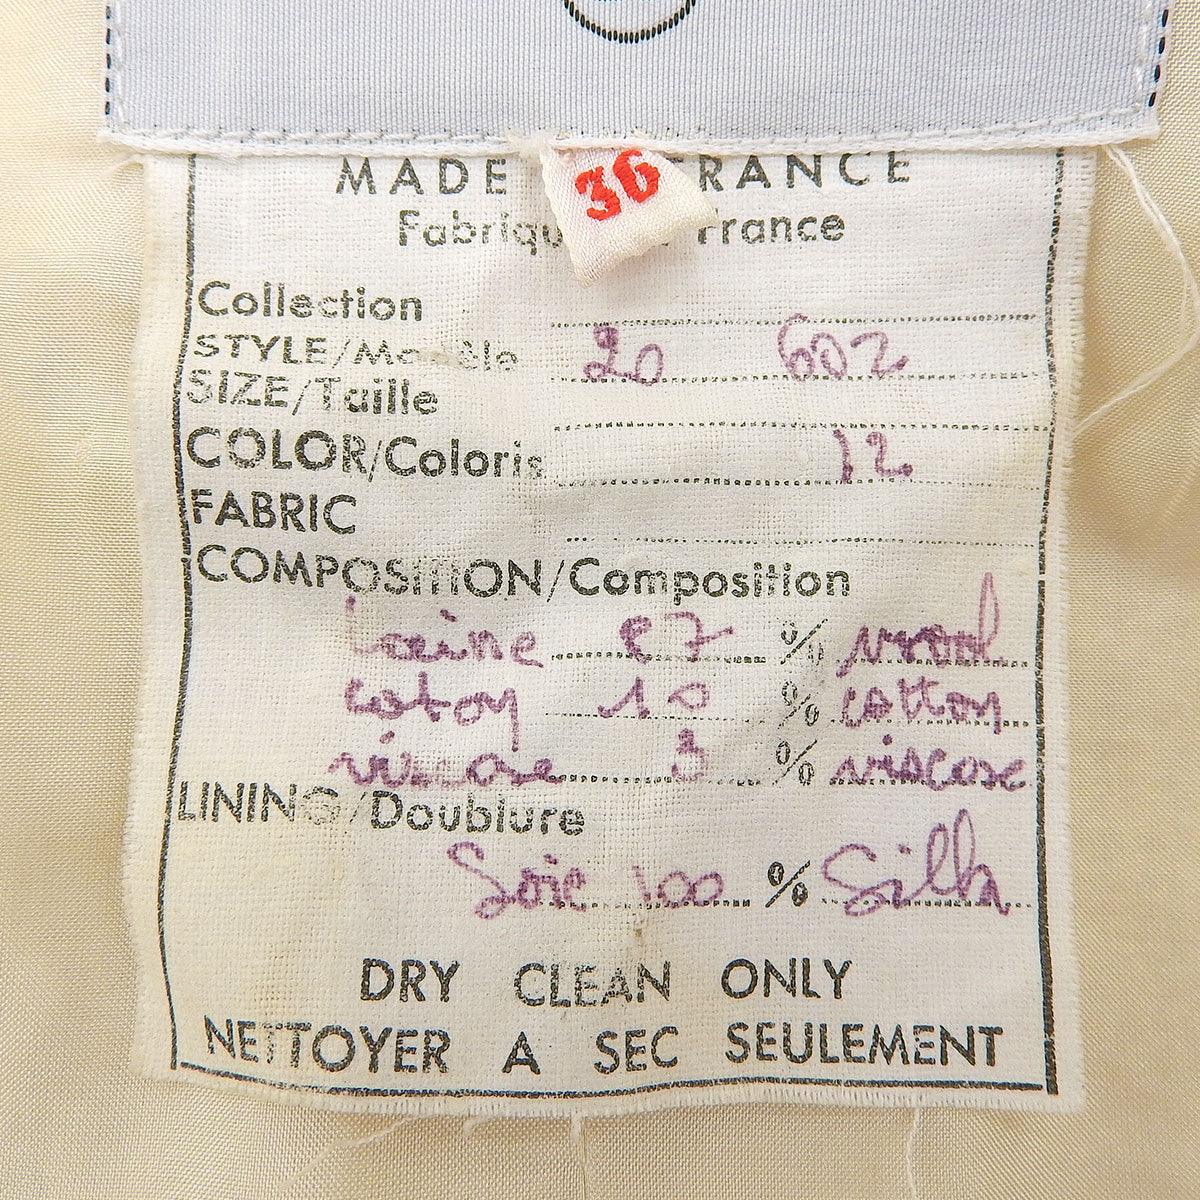 MADE FRANCE
36
Fabriqu France
Collection
STYLE/Modèle 20 602
SIZE/Taille
COLOR/Coloris 12
FABRIC
COMPOSITION/Composition
Laine 87 % wool
coton 10 % cotton
viscose 3 % viscose
LINING/Doublure
Soie 100 % Silk
DRY CLEAN ONLY
NETTOYER A SEC SEULEMENT